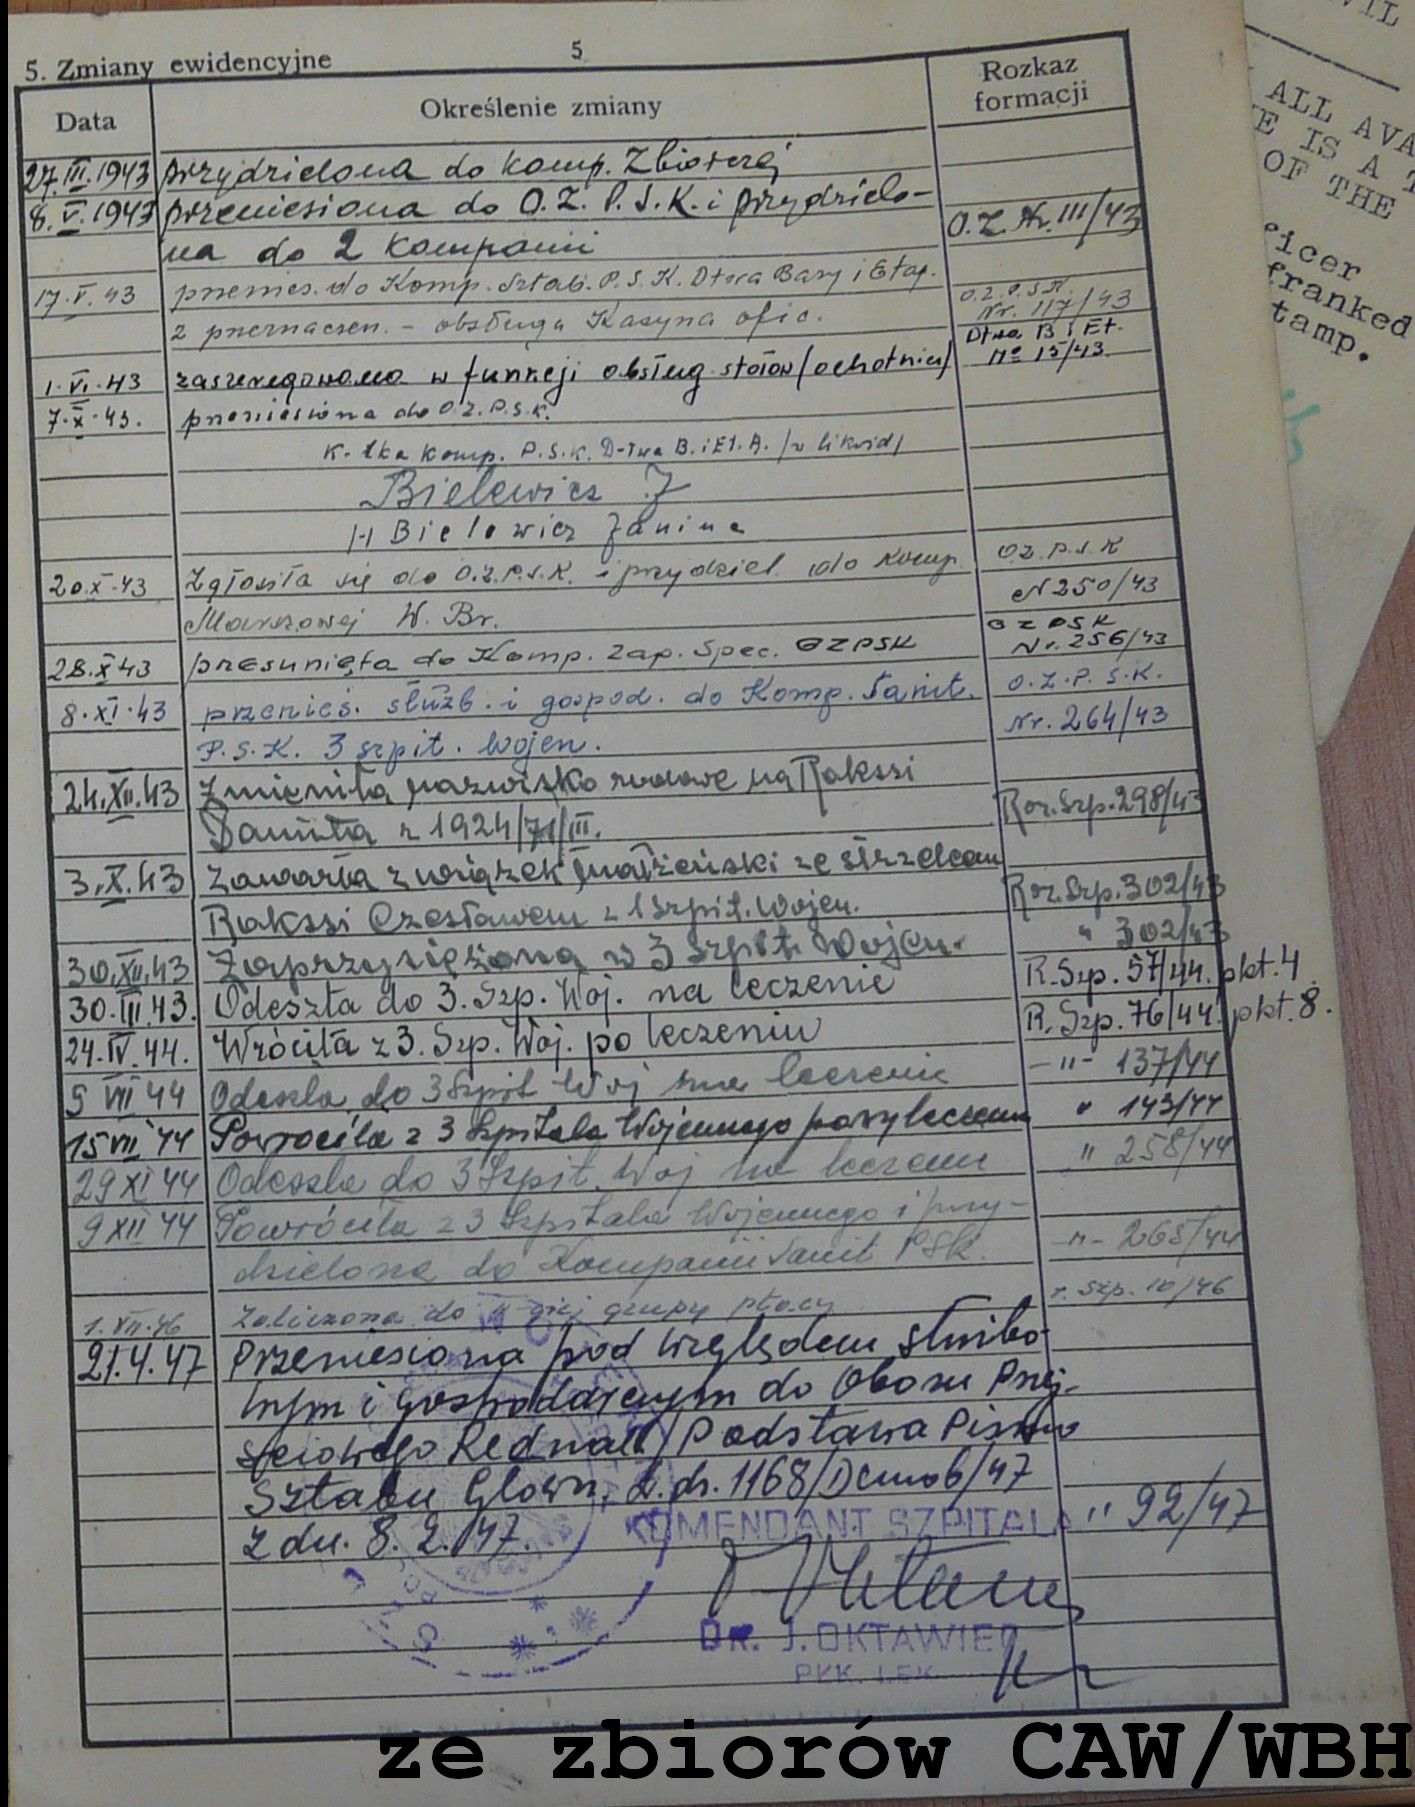 5. Zmiany ewidencyjne
5
Data Określenie zmiany Rozkaz formacji
27.III.1943 przydzielona do komp. Zbiorczej
8.V.1943 przeniesiona do O.Z.P.S.K. i przydzielo-
na do 2 kompanii O.Z. Nr. III/43
17.V.43 przenies. do Komp. Sztab. P.S.K. Dtwa Bazy i Etap. O.Z.P.S.K.
z przeznaczen. - obsługa Kasyna ofic. Nr. 117/43
Dtwa B i Et.
1.VI.43 zaszeregowana w funkcji obsług stołów /ochotnicz/ No 15/43.
7.X.43. przeniesiona do O.Z.P.S.K.
K-tka komp. P.S.K. D-twa B. i Et. A. /w likwid/
Bielewicz J
/-/ Bielewicz Janina
20.X.43 Zgłosiła się do O.Z.P.S.K. i przydziel. do komp. OZ.P.S.K
Marszowej W. Br. N 250/43
OZPSK
28.X.43 przesunięta do Komp. Zap. Spec. OZPSK Nr. 256/43
8.XI.43 przenieś. służb. i gospod. do Komp. Sanit. O.Z.P.S.K.
P.S.K. 3 szpit. Wojen. Nr. 264/43
24.XII.43 Zmieniła nazwisko rodowe na Rakssi
Danuta z 1924/71/III. Roz.Szp.298/43
3.X.43 Zawarła związek małżeński ze strzelcem
Rakssi Czesławem z 1 Szpit. Wojen. Roz.Szp.302/43
30.XII.43 Zaprzysiężona w 3 Szpit. Wojen. " 302/43
30.III.43. Odeszła do 3. Szp. Woj. na leczenie R.Szp. 57/44. pkt.4.
24.IV.44. Wróciła z 3. Szp. Woj. po leczeniu R. Szp. 76/44. pkt.8.
5 VII 44 Odeszła do 3 Szpit Woj na leczenie -"- 137/44
15 VII 44 Powróciła z 3 Szpitala Wojennego po wyleczeniu " 143/44
29 XI 44 Odeszła do 3 Szpit. Woj na leczenie " 258/44
9 XII 44 Powróciła z 3 Szpitala Wojennego i przy-
dzielona do Kompanii Sanit PSK. -"- 265/44
1.VII.46 Zaliczona do grupy płacy r. Szp. 10/46
21.4.47 Przeniesiona pod względem służbo-
wym i gospodarczym do Obozu Przej-
ściowego Rednall / Podstawa Pismo
Sztabu Głown. L.dz. 1168/Demob/47
z dn. 8.2.47. " 92/47
KOMENDANT SZPITALA
DR. J. OKTAWIEC
PŁK. LEK.
VIL
ALL AVA
E IS A T
OF THE
ficer
franked
tamp.
ze zbiorów CAW/WBH